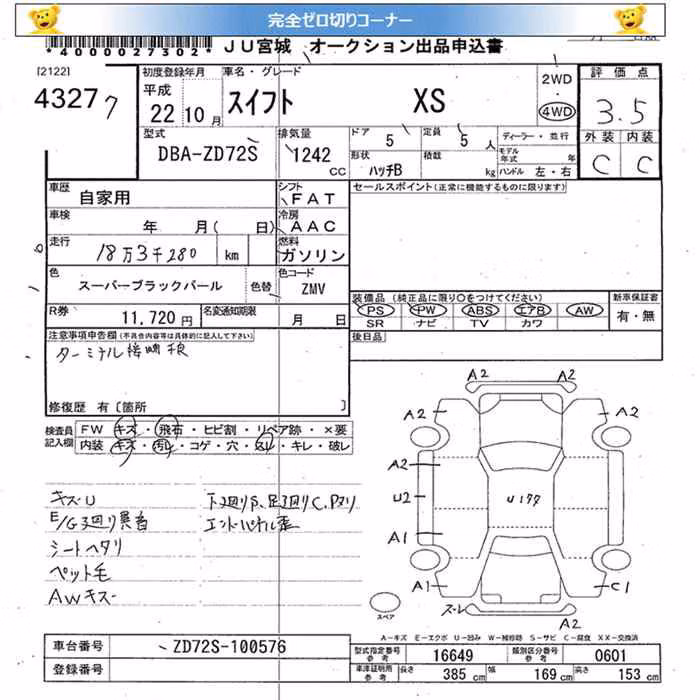 完全ゼロ切りコーナー
*40000027302*
JU宮城 オークション出品申込書
[2122]
43277
初度登録年月 平成 22 10月
車名・グレード
スイフト XS
2WD
4WD
評価点
3.5
外装 内装
C C
型式
DBA-ZD72S
排気量
1242 CC
ドア 5
定員 5人
形状 ハッチB
積載 kg
ディーラー・並行
モデル年式 年
ハンドル 左・右
車歴 自家用
シフト FAT
セールスポイント(正常に機能するものに限ります)
車検 年 月( 日)
冷房 AAC
走行 18万3千280 km
燃料 ガソリン
色 スーパーブラックパール 色替
色コード ZMV
R券 11,720円
名変通知期限 月 日
装備品(純正品に限り〇をつけてください)
PS PW ABS エアB AW
SR ナビ TV カワ
新車保証書
有・無
後日品
注意事項申告欄(不具合内容等は具体的に記入して下さい)
ターミナル接触不良
修復歴 有[箇所 ]
検査員記入欄
FW キズ・飛石・ヒビ割・リペア跡・×要
内装 キズ・汚れ・コゲ・穴・スレ・キレ・破レ
キズ・U
E/G廻り異音
シートヘタリ
ペット毛
AWキズ
下廻りS、足廻りC、Pヌリ
エンドパネル歪
A2 A2
A2 A2
A2
U2
U177
A1
A1 C1
スレ A2
スペア
A-キズ E-エクボ U-凹み W-補修跡 S-サビ C-腐食 XX-交換済
車台番号 ZD72S-100576
登録番号
型式指定番号 参考 16649
類別区分番号 参考 0601
車庫証明用 参考 長さ 385 cm 幅 169 cm 高さ 153 cm